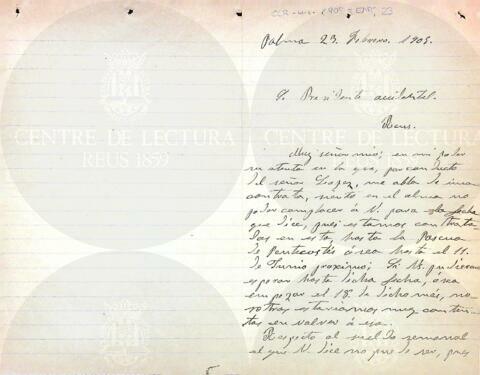 Palma 23 Febrero 1905.
S. Presidente accidental.
Reus.
Muy señor mio: en mi poder
su atenta en la que, por conducto
del señor Lopez, me abla de una
contrata, siento en el alma no
poder complacer á V. para la fecha
que dice, pues estamos contrata-
das en esta, hasta la Pascua
de Pentecostés ó sea hasta el 11.
de Junio proximo; Si V. pudiera
esperar hasta dicha fecha, ó sea
empezar el 18 de dicho mes, no-
sotras estariamos muy conten-
tas en volver á esa.
Respecto al sueldo semanal
el que V. dice no puede ser, pues
CENTRE DE LECTURA
REUS 1859
CENTRE DE LECTURA
REUS 1859